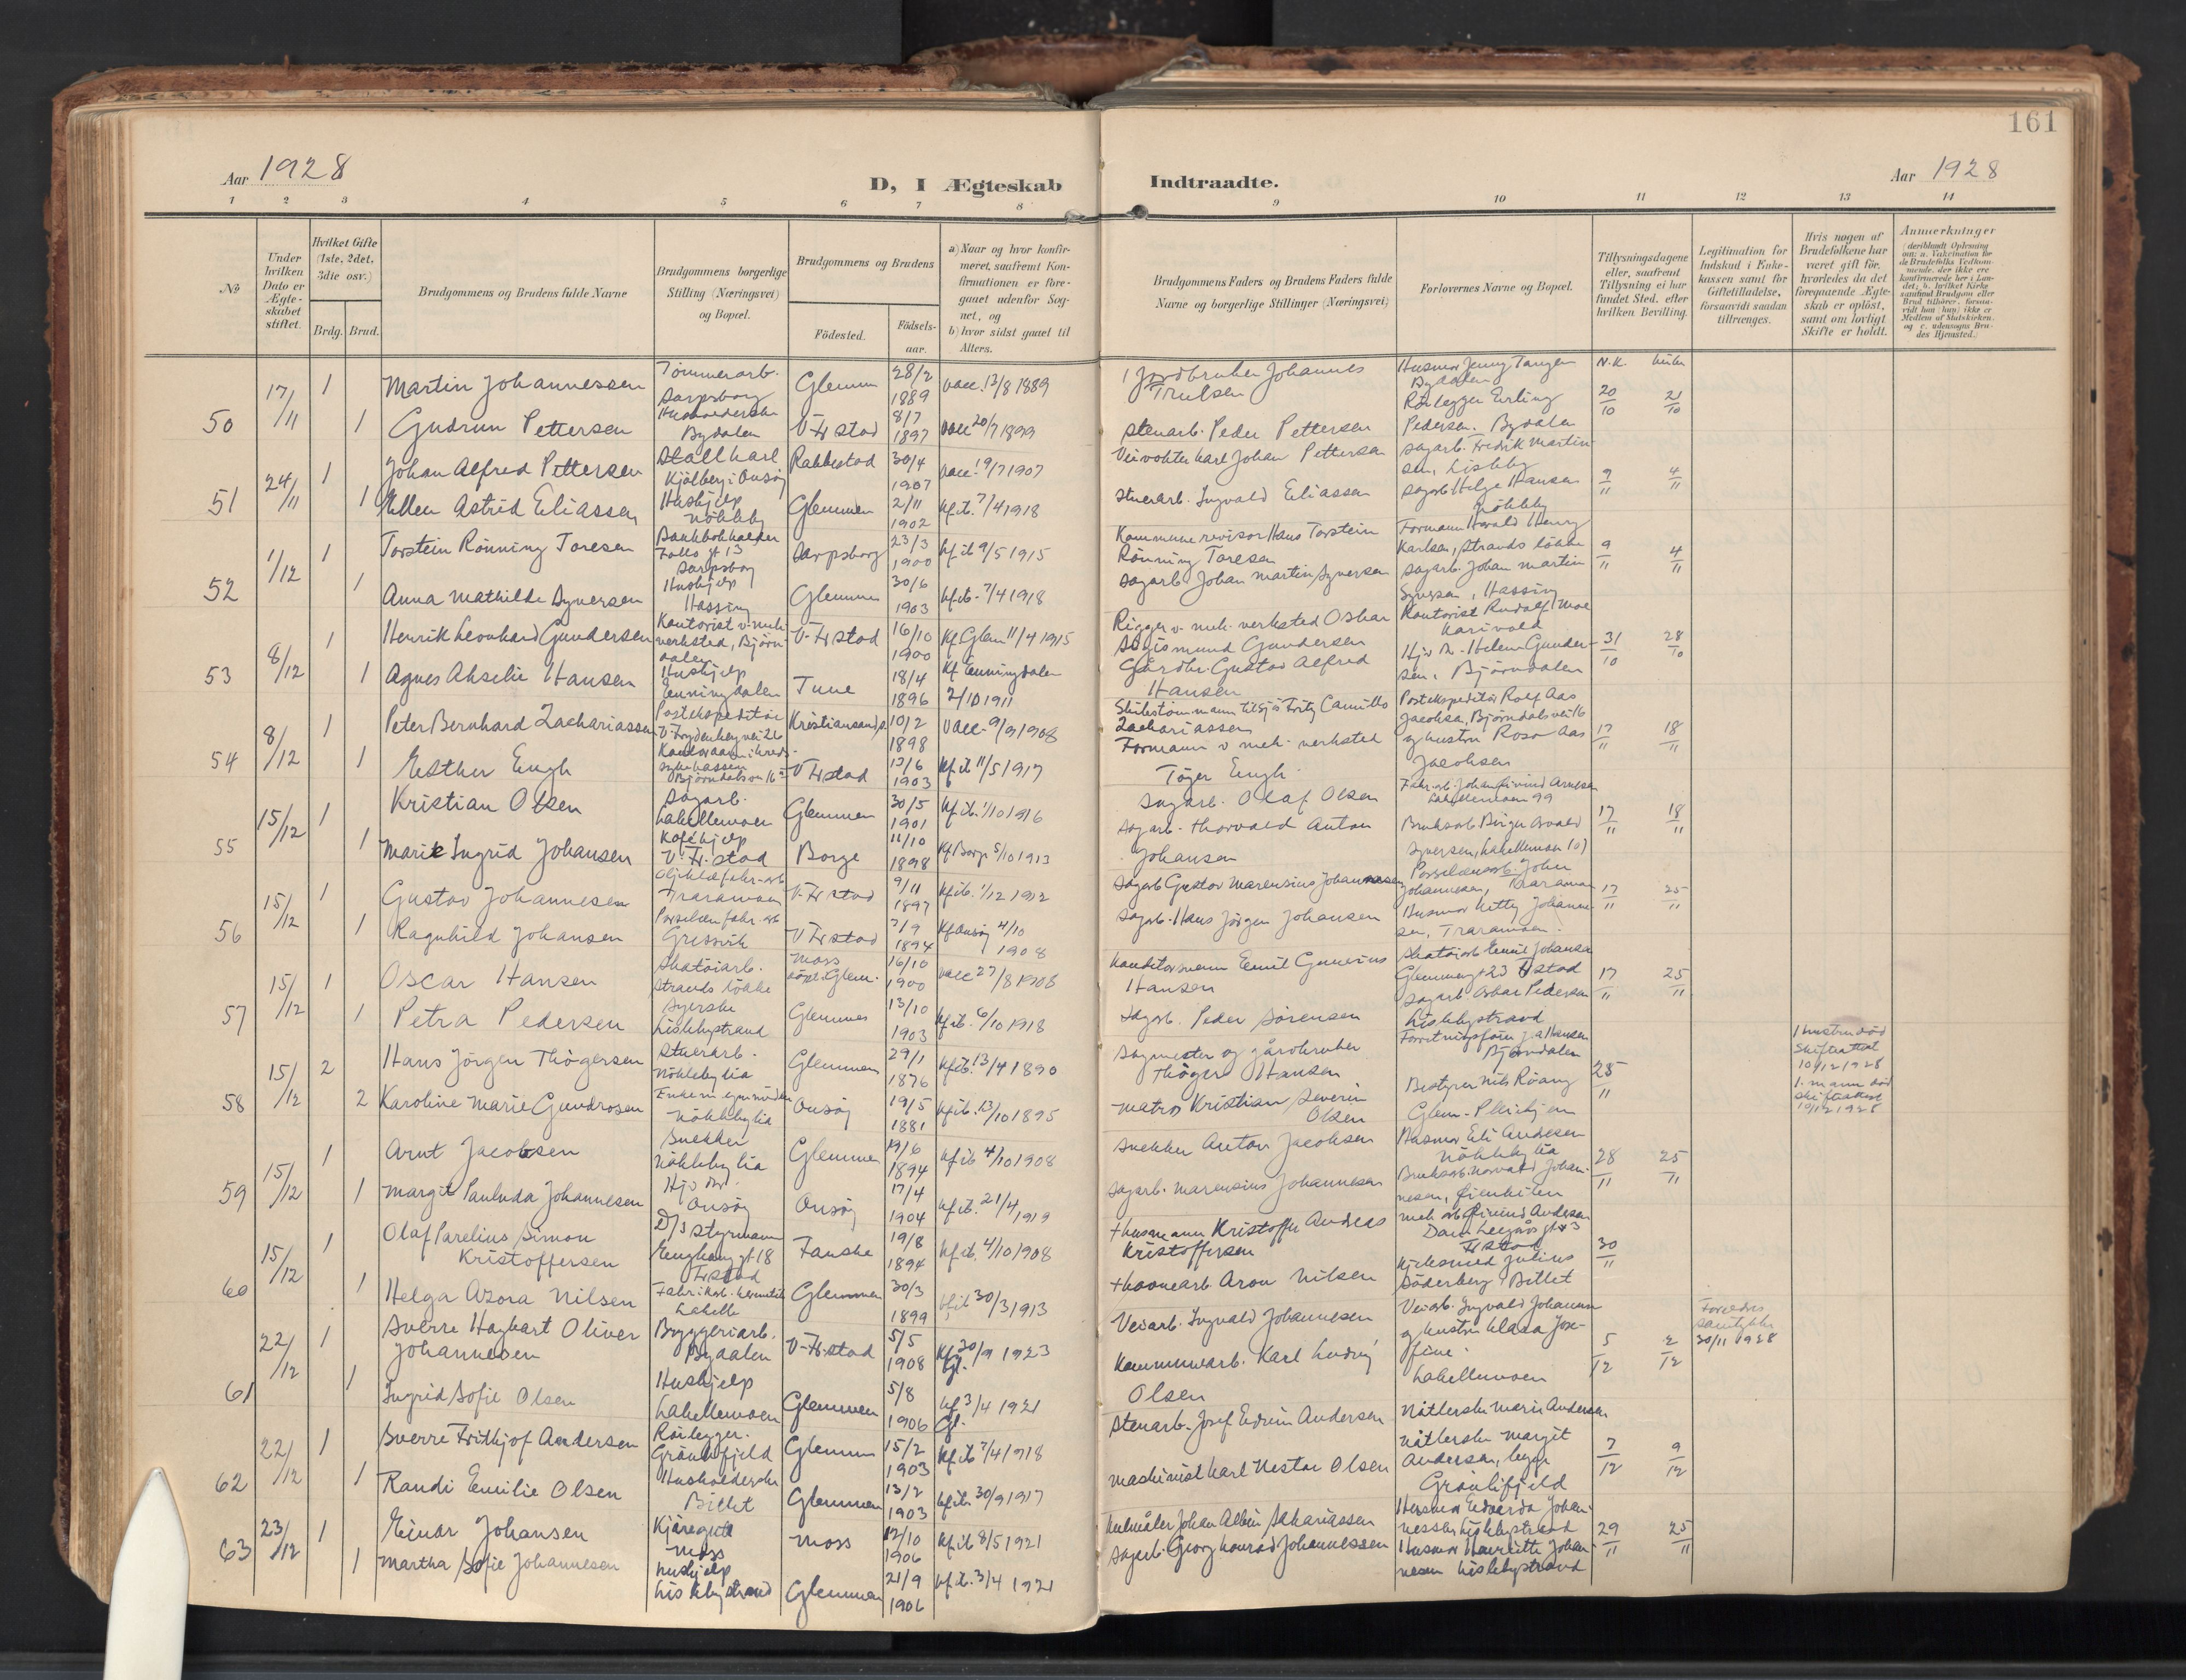 161
Aar 1928
D, I Ægteskab
Indtraadte.
Aar 1928
1 2 3 4 5 6 7 8 9 10 11 12 13 14
No
Under hvilken Dato er Ægteskabet stiftet.
Hvilket Gifte (1ste, 2det, 3die osv.)
Brdg. Brud.
Brudgommens og Brudens fulde Navne
Brudgommens borgerlige Stilling (Næringsvei) og Bopæl.
Brudgommens og Brudens
Fødested.
Fødselsaar.
a) Naar og hvor konfirmeret, saafremt Konfirmationen er foregaaet udenfor Sognet, og
b) hvor sidst gaaet til Alters.
Brudgommens Faders og Brudens Faders fulde Navne og borgerlige Stillinger (Næringsvei)
Forlovernes Navne og Bopæl.
Tillysningsdagene eller, saafremt Tillysning ei har fundet Sted, efter hvilken Bevilling.
Legitimation for Indskud i Enkekassen samt for Giftetilladelse, forsaavidt saadan tiltrænges.
Hvis nogen af Brudefolkene har været gift før, hvorledes da det foregaaende Ægteskab er opløst, samt om lovligt Skifte er holdt.
Anmærkninger
50 17/11 1 Martin Johannessen Tømmerarb. Sarpsborg Glemmen 28/2 1889 vacc. 12/8 1889 Jordbruker Johannes Truelsen Husmor Jenny Tangen Bydalen N.K. 20/10 21/10
1 Gudrun Pettersen Husholderske Bydalen V. Frstad 8/7 1897 vacc 20/7 1899 Stenarb. Peder Pettersen Rørlegger Erling Pedersen, Bydalen
51 24/11 1 Johan Alfred Pettersen Stallkarl Kjølberg i Onsøy Rakkestad 30/4 1907 vacc. 19/7 1907 Veivokter Karl Johan Pettersen Sagarb. Fredrik Martinsen, Lisleby 9/11 4/11
1 Ellen Astrid Eliassen Hushjelp Nøkleby Glemmen 2/11 1902 kf. ib. 7/4 1918 Stuerarb. Ingvald Eliassen Sagarb Helge Hansen Nøkleby
52 1/12 1 Torstein Rønning Toresen Bankbokholder Sarpsborg Sarpsborg 23/3 1900 kf ib 9/5 1915 Kommunerevisor Hans Torstein Rønning Toresen Formann Harald Henry Karlsen, Strands løkke 9/11 4/11
1 Anna Mathilde Syversen Hushjelp Hassing Glemmen 30/6 1903 kf. ib. 7/4 1918 Sagarb Johan Martin Syversen Sagarb. Johan Martin Syversen, Hassing
53 8/12 1 Henrik Leonhard Gundersen Kontorist v. mek. verksted, Bjørndalen V. Frstad 16/10 1900 Kf Glem 11/4 1915 Rigger v. mek. verksted Oskar Sigismund Gundersen Kontorist Rudolf Moe Karivold 31/10 28/10
1 Agnes Akselie Hansen Hushjelp Enningdalen Tune 18/4 1896 Kf Enningdalen 2/10 1911 Gårdbr. Gustav Alfred Hansen Helene Gundersen, Bjørndalen
54 8/12 1 Peter Bernhard Zachariassen Postekspeditør V. Frydenbergvei 26 Kristiansand S. 10/2 1898 vacc. 9/9 1908 Zachariassen Postekspeditør Rolf Aas Jacobsen, Bjørndalsvei 16 og hustru Rosa Aas Jacobsen 17/11 18/11
1 Esther Engh V Frstad 13/6 1903 kf ib 11/5 1917 Formann v mek. verksted Tøger Engh
55 15/12 1 Kristian Olsen Sagarb. Lahellemoen Glemmen 30/5 1901 kf. ib. 1/10 1916 Sagarb. Olaf Olsen Fabr. arb. Johan Eivind Arnesen Lahellemoen 99 17/11 18/11
1 Marie Ingrid Johansen Kaféhjelp V. Fr. stad Borge 11/10 1898 Kf Borge 5/10 1913 Sagarb. Thorvald Anton Johansen Bruksarb. Birger Osvald Syversen, Lahellemoen 107
56 15/12 1 Gustav Johannesen Traramoen V. Frstad 9/11 1897 kf ib. 1/12 1912 Sagarb Gustav Marensius Johannesen Porselensarb. John Johannesen, Traramoen 17/11 25/11
1 Ragnhild Johansen Porselen fabr. arb Gressvik V Frstad 7/9 1894 Kf Onsøy 4/10 1908 Sagarb. Hans Jørgen Johansen Husmor Kitty Johannesen, Traramoen.
57 15/12 1 Oscar Hansen Skotøiarb. Strands løkke Moss døpt i Glem. 16/10 1900 vacc 27/8 1908 Konditorsvenn Emil Gunerius Hansen Skotøiarb Emil Johansen Glemmengt 23 Frstad 17/11 25/11
1 Petra Pedersen Syerske Lislebystrand Glemmen 13/10 1903 kf ib. 6/10 1918 Sagarb. Peder Sørensen Sagarb. Oskar Pedersen Lislebystrand
58 15/12 2 Hans Jørgen Thøgersen Stuerarb. Nøkleby lia Glemmen 29/1 1876 kf ib. 13/4 1890 Sagmester og gårdbruker Thøger Hansen Forretningsfører Hansen Bjørndalen 25/11 1 hustru død Skifteattest 10/12 1928
2 Karoline Marie Gundrosen Nøkleby lia Onsøy 19/5 1881 kf ib. 13/10 1895 Matros Kristian Severin Olsen Bestyrer Nils Røang Glem. Pleiehjem 1. mann død skifteattest 10/12 1928
59 15/12 1 Arnt Jacobsen Snekker Nøkleby lia Glemmen 19/6 1894 kf ib 4/10 1908 Snekker Anton Jacobsen Husmor Eli Andresen Nøkleby lia 28/11 25/11
1 Margit Paulnda Johannesen Onsøy Onsøy 17/4 1904 kf ib. 21/4 1919 Sagarb. Marensius Johannesen Bruksarb. Norvald Johannesen, Øienkilen
60 15/12 1 Olaf Parelius Simon Kristoffersen D/S styrmann Enghaug gt 18 Frstad Fauske 19/8 1894 kf. ib. 4/10 1908 + husmann Kristoffer Andreas Kristoffersen mek arb Øivind Andersen Damhesgårds gt 3 Frstad 30/11
1 Helga Azora Nilsen Lahelle Glemmen 30/3 1899 kf ib 30/3 1913 + havnearb. Aron Nilsen Kjelesmed Julius Söderberg, Bittet
61 22/12 1 Sverre Hagbart Oliver Johannesen Bryggeriarb. Bydalen V. Fr. stad 5/5 1908 Kf Gl. 30/9 1923 Veiarb. Ingvald Johannesen Veiarb. Ingvald Johannesen og hustru Klara Josefine. 5/12 2/12 Foreldres samtykke 30/11 1928
1 Ingrid Sofie Olsen Hushjelp Lahellemoen Glemmen 5/8 1906 kf Gl. 3/4 1921 Kommunearb. Karl Ludvig Olsen Lahellemoen
62 22/12 1 Sverre Fritjof Andersen Rørlegger. Grønlifjeld Glemmen 15/2 1903 kf ib 7/4 1918 Stenarb. Josef Edvin Andersen Nøtlerske Marie Andersen 7/12 9/12
1 Randi Emilie Olsen Husholderske Bittet Glemmen 13/2 1903 kf ib. 30/9 1917 Maskinist Karl Nestor Olsen Nøtlerske Margit Andersen, begge Grønlifjeld
63 23/12 1 Einar Johansen Kjøregutt Moss Moss 12/10 1906 kf ib 8/5 1921 Johan Albin Sakariassen Husmor Edvarda Johannessen Lislebystrand 29/11 25/11
1 Martha Sofie Johannesen Hushjelp Lislebystrand Glemmen 21/9 1906 kf. ib. 3/4 1921 Sagarb. Georg Konrad Johannessen Husmor Henriette Johannesen Lislebystrand